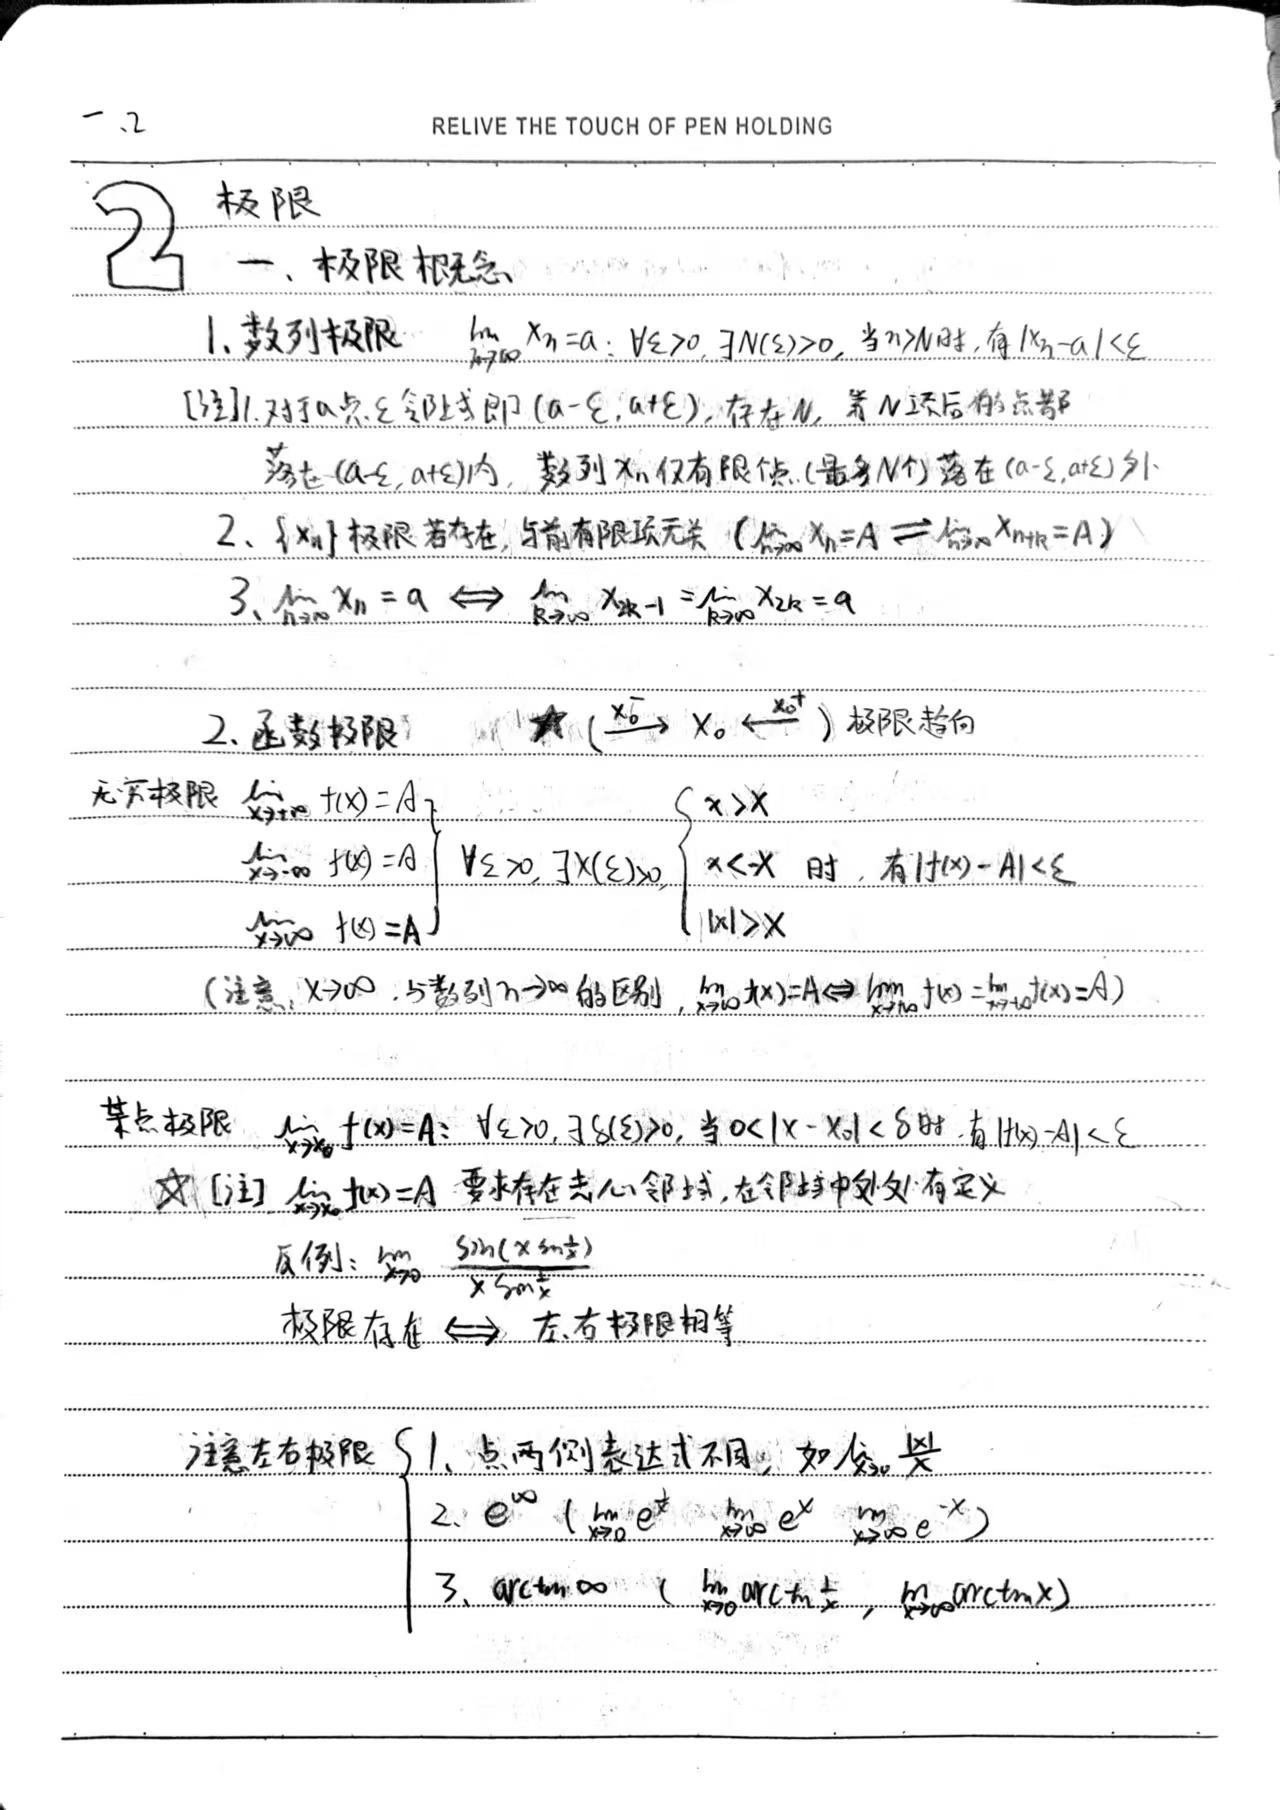 一、2
RELIVE THE TOUCH OF PEN HOLDING
2 极限
一、极限概念
1、数列极限 lim_{n→∞} xₙ=a: ∀ε>0, ∃N(ε)>0, 当n>N时, 有|xₙ-a|<ε
[注]1.对于a点ε邻域即(a-ε, a+ε), 存在N, 第N项后的点都
落在(a-ε, a+ε)内, 数列xₙ仅有限个点(最多N个)落在(a-ε, a+ε)外
2、{xₙ}极限若存在, 与前有限项无关 (lim_{n→∞} xₙ=A ⇌ lim_{n→∞} x_{n+k}=A)
3、lim_{n→∞} xₙ=a ⟺ lim_{k→∞} x_{2k-1}=lim_{k→∞} x_{2k}=a
2、函数极限 ★ (x₀⁻→ x₀ ←x₀⁺) 极限趋向
无穷极限 lim_{x→+∞} f(x)=A
lim_{x→-∞} f(x)=A } ∀ε>0, ∃X(ε)>0, { x>X
x<-X 时, 有|f(x)-A|<ε
lim_{x→∞} f(x)=A |x|>X
(注意: x→∞, 与数列n→∞的区别, lim_{x→∞} f(x)=A ⟺ lim_{x→+∞} f(x)=lim_{x→-∞} f(x)=A)
某点极限 lim_{x→x₀} f(x)=A: ∀ε>0, ∃δ(ε)>0, 当0<|x-x₀|<δ时, 有|f(x)-A|<ε
☆ [注] lim_{x→x₀} f(x)=A 要求存在去心邻域, 在邻域中处处有定义
反例: lim_{x→0} sin(x sin 1/x) / (x sin 1/x)
极限存在 ⟺ 左、右极限相等
注意左右极限 { 1、点两侧表达式不同, 如 lim_{x→0} |x|/x
2、e^∞ (lim_{x→0} e^{1/x} lim_{x→∞} e^x lim_{x→∞} e^{-x})
3、arctan∞ (lim_{x→0} arctan 1/x, lim_{x→∞} arctan x)